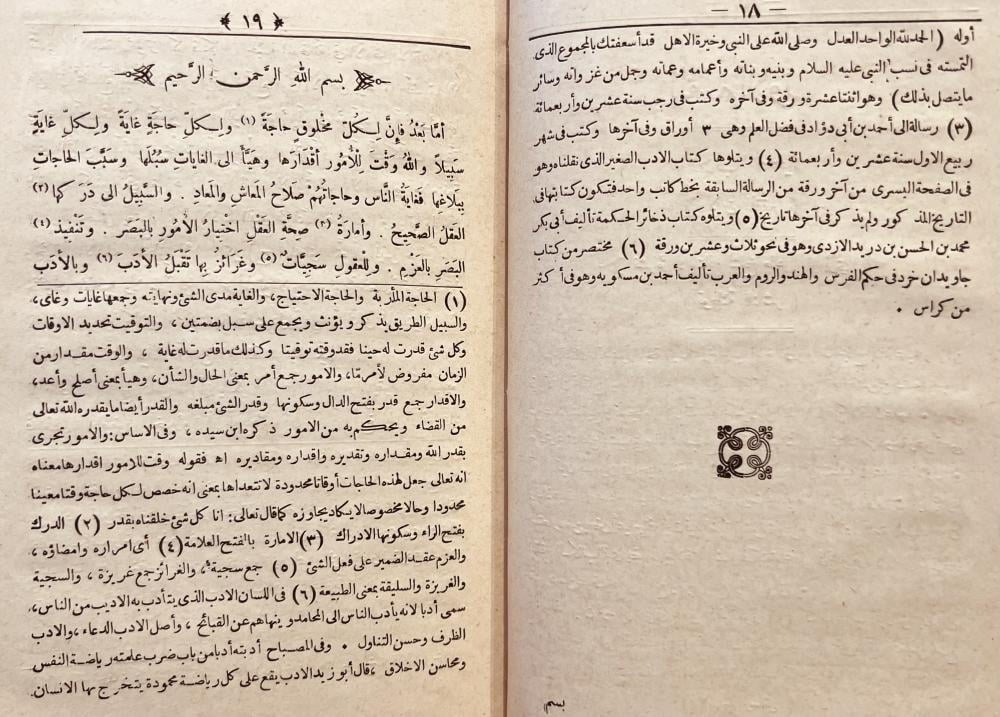 — ١٨ —
أوله ( الحمد لله الواحد العدل وصلى الله على النبي وخيرة الاهل قد أسعفتك بالمجموع الذى
التمسته فى نسب النبى عليه السلام وبنيه وبناته وأعمامه وعماته وجمل من غزواته وسائر
ما يتصل بذلك ) وهو اثنتا عشرة ورقة وفى آخره وكتب فى رجب سنة عشرين وأربعمائة
(٣) رسالة الى أحمد بن أبى دؤاد فى فضل العلم وهى ٣ أوراق وفى آخرها وكتب فى شهر
ربيع الاول سنة عشرين وأربعمائة (٤) ويتلوها كتاب الادب الصغير الذى نقلناه وهو
فى الصفحة اليسرى من آخر ورقة من الرسالة السابقة بخط كاتب واحد فتكون كتابتها فى
التاريخ المذكور ولم يذكر فى آخرها تاريخ (٥) ويتلوه كتاب ذخائر الحكمة تأليف أبى بكر
محمد بن الحسن بن دريد الازدى وهو فى نحو ثلاث وعشرين ورقة (٦) مختصر من كتاب
جاويدان خرد فى حكم الفرس والهند والروم والعرب تأليف أحمد بن مسكويه وهو فى أكثر
من كراس .
بسم
﴿ ١٩ ﴾
بسم الله الرَّحمن الرَّحيم
أمَّا بَعْدُ فإِنَّ لِكُلّ مخلوقٍ حاجَةً (١) ولِكلّ حاجَةٍ غايَةً ولِكلّ غايَةٍ
سَبِيلاً واللهُ وَقَّتَ لِلْأُمُورِ أقْدَارَهَا وهَيَّأَ الى الغاياتِ سُبُلَهَا وسَبَّبَ الحاجاتِ
بِبَلاغِها فَغايَةُ النَّاسِ وحاجاتُهُمْ صَلاحُ المَعاشِ والمَعادِ . والسَّبيلُ الى دَرَكِها (٢)
العَقْلُ الصَّحيحُ . وأمارَةُ (٣) صِحَّةِ العَقْلِ اخْتِيارُ الأمُورِ بالبَصَرِ . وتَنْفِيذُ (٤)
البَصَرِ بالعَزْمِ . وللعقولِ سَجِيَّاتٌ (٥) وغَرَائزُ بها تَقْبَلُ الأدَبَ (٦) وبالأدَبِ
(١) الحاجة المأربة والحاجة الاحتياج، والغاية مدى الشئ ونهايته وجمعها غايات وغاى،
والسبيل الطريق يذكر ويؤنث ويجمع على سبل بضمتين، والتوقيت تحديد الاوقات
وكل شئ قدرت له حينا فقد وقته توقيتا وكذلك ما قدرت له غاية ، والوقت مقدار من
الزمان مفروض لأمر مّا، والامور جمع أمر بمعنى الحال والشأن، وهيأ بمعنى أصلح وأعد،
والاقدار جمع قدر بفتح الدال وسكونها وقدر الشئ مبلغه والقدر أيضا ما يقدره الله تعالى
من القضاء ويحكم به من الامور ذكره ابن سيده ، وفى الاساس: والامور تجرى
بقدر الله ومقداره وتقديره واقداره ومقاديره اه فقوله وقت للامور اقدارها معناه
انه تعالى جعل لهذه الحاجات أوقاتا محدودة لا تتعداها بمعنى انه خصص لكل حاجة وقتا معينا
محدودا وحالا مخصوصا لا يكاد يجاوزه كما قال تعالى: انا كل شئ خلقناه بقدر (٢) الدرك
بفتح الراء وسكونها الادراك (٣) الامارة بالفتح العلامة (٤) أى امراره وامضاؤه ،
والعزم عقد الضمير على فعل الشئ (٥) جمع سجية، والغرائز جمع غريزة ، والسجية
والغريزة والسليقة بمعنى الطبيعة (٦) فى اللسان الادب الذى يتأدب به الاديب من الناس،
سمى أدبا لانه يأدب الناس الى المحامد وينهاهم عن القبائح ، وأصل الادب الدعاء، والادب
الظرف وحسن التناول . وفى المصباح أدبته أدبا من باب ضرب علمته رياضة النفس
ومحاسن الاخلاق ، قال أبو زيد الادب يقع على كل رياضة محمودة يتخرج بها الانسان.